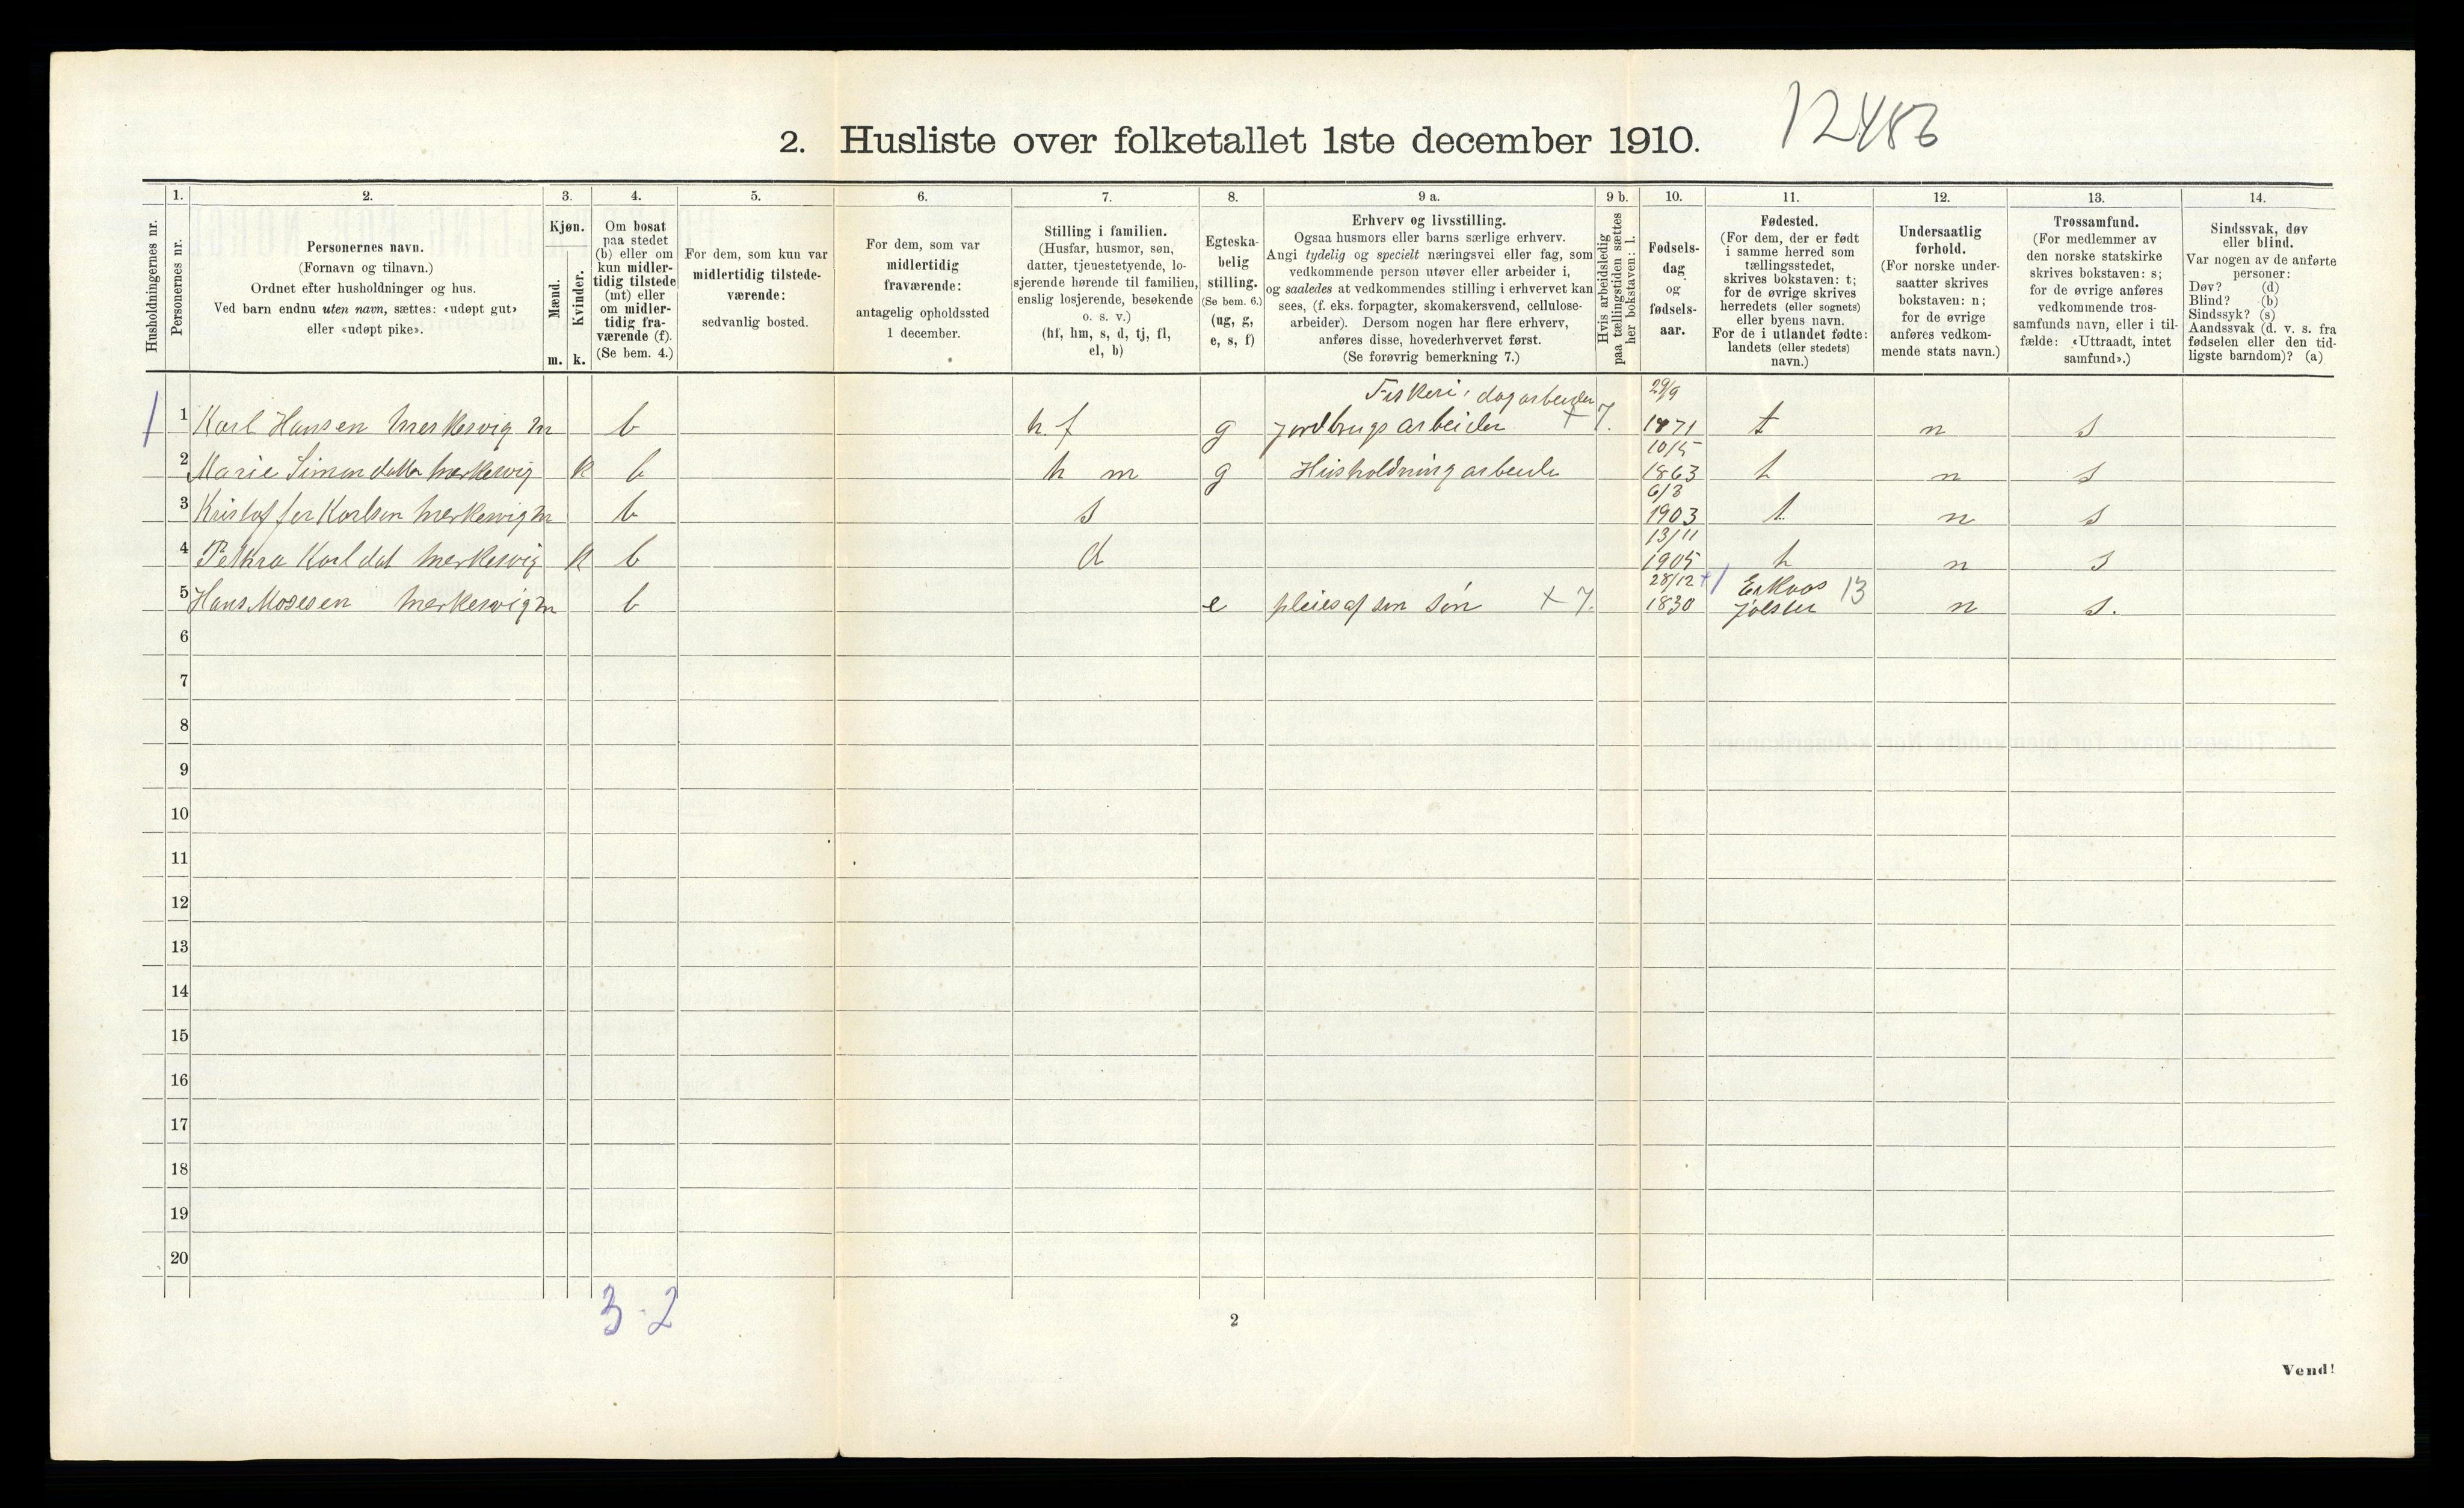 12486
2. Husliste over folketallet 1ste december 1910.
Husholdningernes nr.
1.
Personernes nr.
2.
Personernes navn.
(Fornavn og tilnavn.)
Ordnet efter husholdninger og hus.
Ved barn endnu uten navn, sættes: «udøpt gut»
eller «udøpt pike».
3.
Kjøn.
Mænd.
Kvinder.
m. k.
4.
Om bosat
paa stedet
(b) eller om
kun midler-
tidig tilstede
(mt) eller
om midler-
tidig fra-
værende (f).
(Se bem. 4.)
5.
For dem, som kun var
midlertidig tilstede-
værende:
sedvanlig bosted.
6.
For dem, som var
midlertidig
fraværende:
antagelig opholdssted
1 december.
7.
Stilling i familien.
(Husfar, husmor, søn,
datter, tjenestetyende, lo-
sjerende hørende til familien,
enslig losjerende, besøkende
o. s. v.)
(hf, hm, s, d, tj, fl,
el, b)
8.
Egteska-
belig
stilling.
(Se bem. 6.)
(ug, g,
e, s, f)
9 a.
Erhverv og livsstilling.
Ogsaa husmors eller barns særlige erhverv.
Angi tydelig og specielt næringsvei eller fag, som
vedkommende person utøver eller arbeider i,
og saaledes at vedkommendes stilling i erhvervet kan
sees, (f. eks. forpagter, skomakersvend, cellulose-
arbeider). Dersom nogen har flere erhverv,
anføres disse, hovederhvervet først.
(Se forøvrig bemerkning 7.)
9 b.
Hvis arbeidsledig
paa tællingstiden sættes
her bokstaven: l.
10.
Fødsels-
dag
og
fødsels-
aar.
11.
Fødested.
(For dem, der er født
i samme herred som
tællingsstedet,
skrives bokstaven: t;
for de øvrige skrives
herredets (eller sognets)
eller byens navn.
For de i utlandet fødte:
landets (eller stedets)
navn.)
12.
Undersaatlig
forhold.
(For norske under-
saatter skrives
bokstaven: n;
for de øvrige
anføres vedkom-
mende stats navn.)
13.
Trossamfund.
(For medlemmer av
den norske statskirke
skrives bokstaven: s;
for de øvrige anføres
vedkommende tros-
samfunds navn, eller i til-
fælde: «Uttraadt, intet
samfund».)
14.
Sindssvak, døv
eller blind.
Var nogen av de anførte
personer:
Døv? (d)
Blind? (b)
Sindssyk? (s)
Aandssvak (d. v. s. fra
fødselen eller den tid-
ligste barndom)? (a)
Fiskeri, dagarbeider 29/9
1 1 Karl Hansen Merkesvig m b h.f g jordbrugsarbeider + 7. 1871 t n s
10/5
2 Marie Simondatter Merkesvig k b h m g Husholdningarbeide 1863 t n s
6/8
3 Kristoffer Karlsen Merkesvig m b s 1903 t n s
13/11
4 Petkra Karldat Merkesvig k b d 1905 t n s
28/12 +1 13
5 Hans Mosesen Merkesvig m b e pleies af sin søn + 7. 1830 Jølster n s.
6
7
8
9
10
11
12
13
14
15
16
17
18
19
20
3-2
2
Vend!